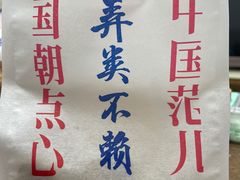 中国范儿
弄类不赖
国朝点心